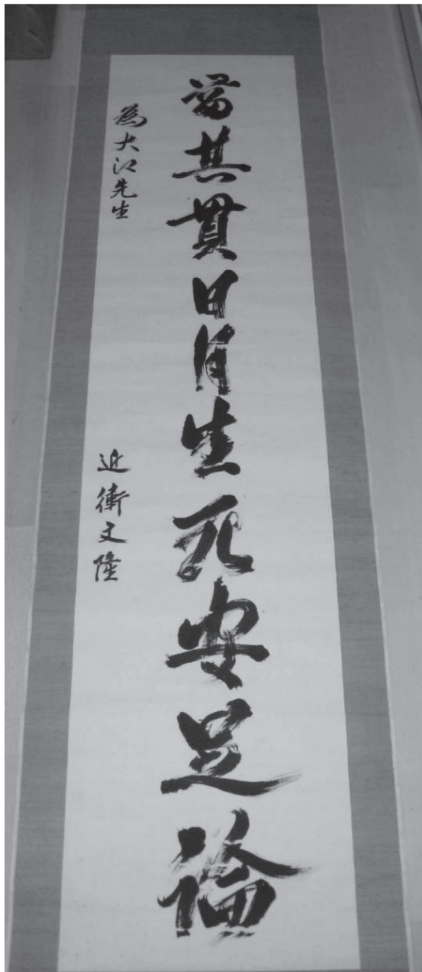 當其貫日月生死安足論
為大江先生
近衛文隆